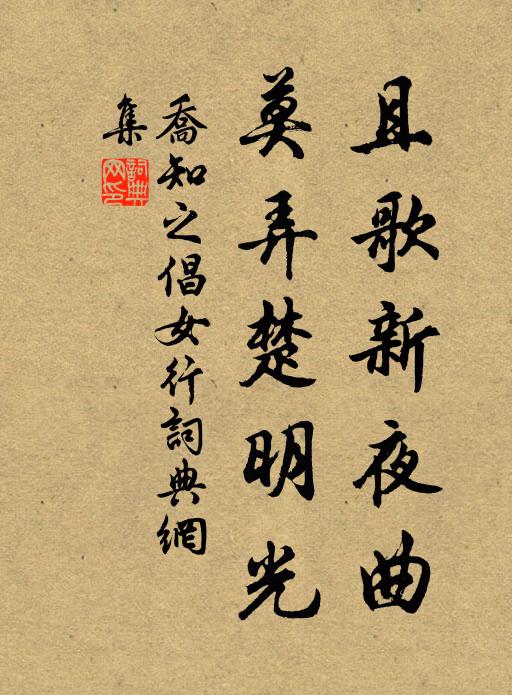 且歌新夜曲
莫弄楚明光
喬知之倡女行詞典網
集
詞典网印